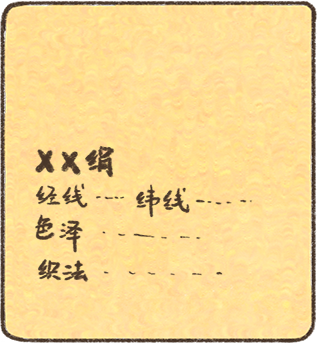 XX绢
经线…… 纬线……
色泽……
织法……